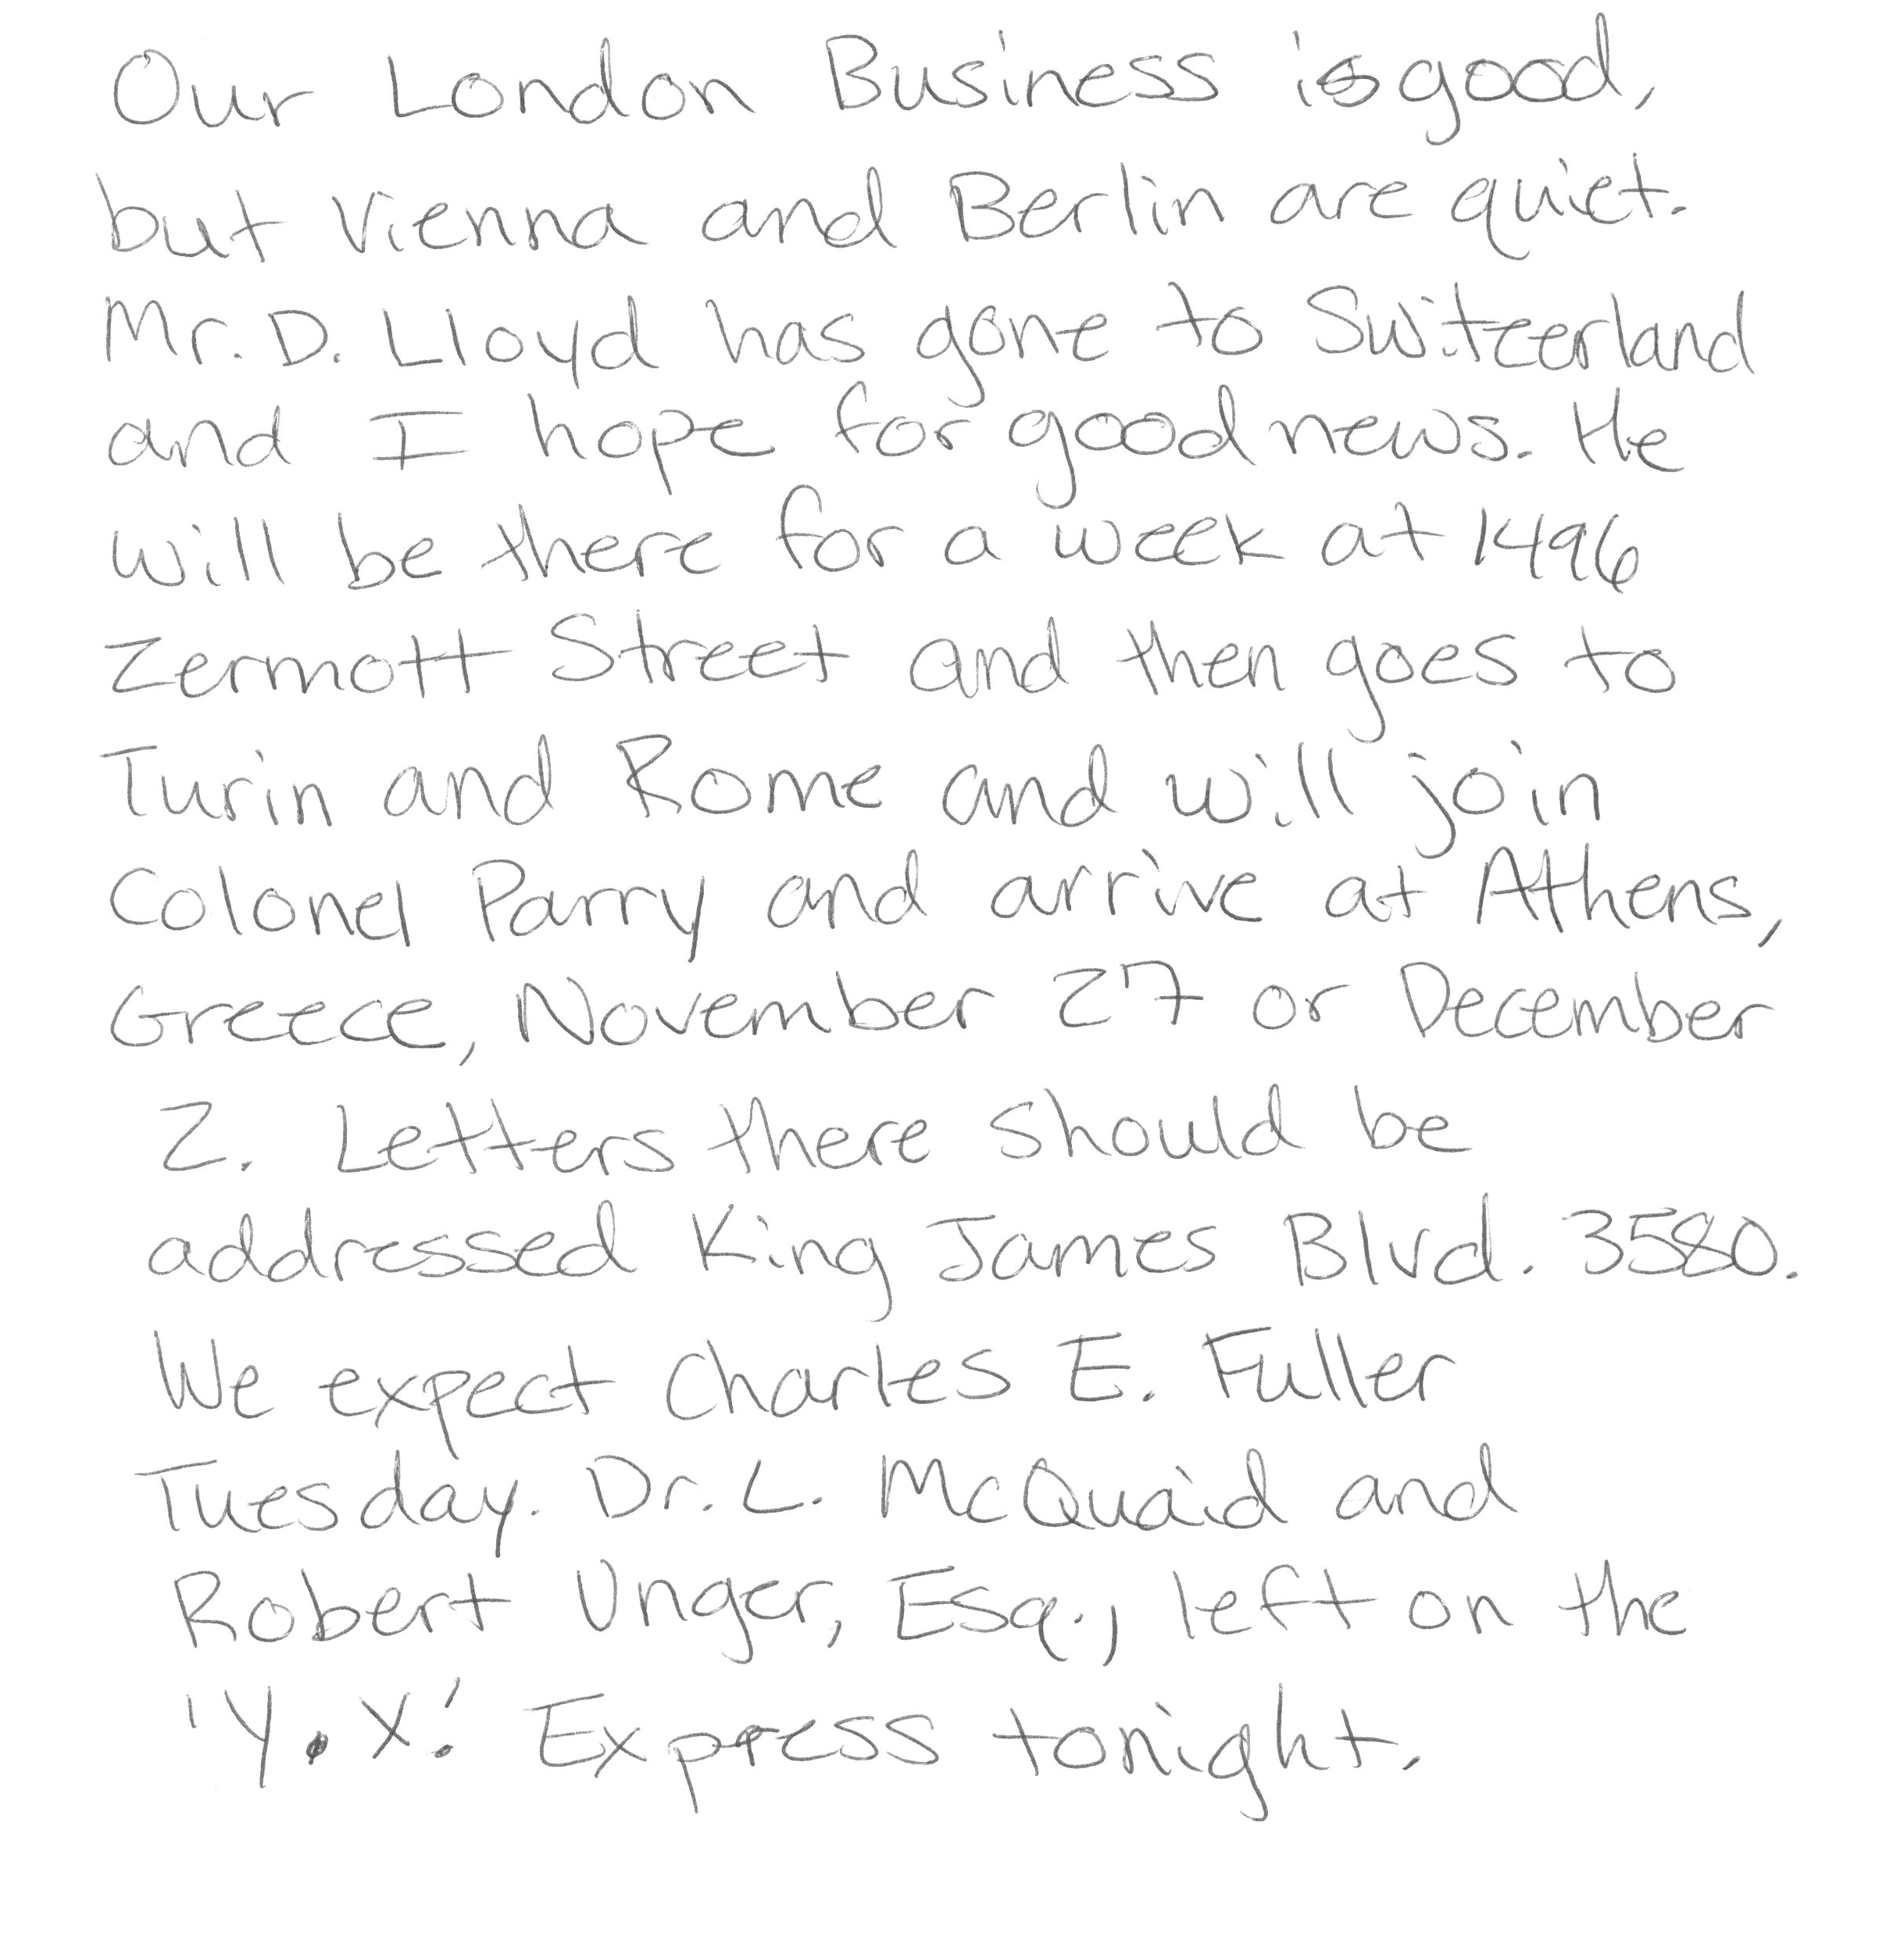 Our London Business is good,
but Vienna and Berlin are quiet.
Mr. D. Lloyd has gone to Switzerland
and I hope for good news. He
will be there for a week at 1496
Zermott Street and then goes to
Turin and Rome and will join
Colonel Parry and arrive at Athens,
Greece, November 27 or December
2. Letters there should be
addressed King James Blvd. 3580.
We expect Charles E. Fuller
Tuesday. Dr. L. McQuaid and
Robert Unger, Esq., left on the
'Y.X.' Express tonight.